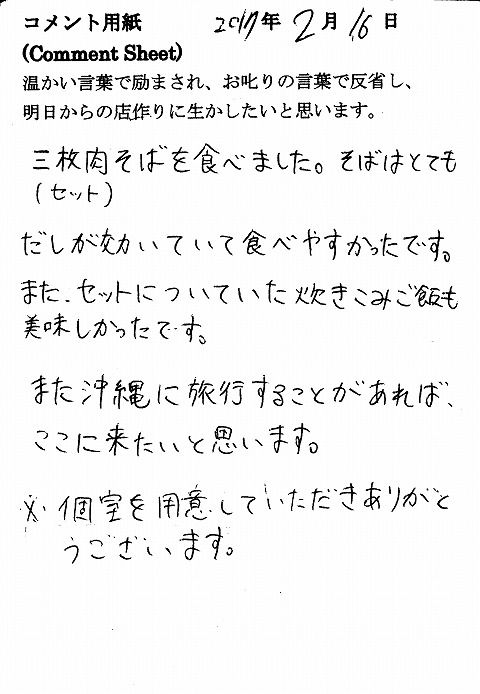 コメント用紙 2017年 2月 16日
(Comment Sheet)
温かい言葉で励まされ、お叱りの言葉で反省し、
明日からの店作りに生かしたいと思います。
三枚肉そばを食べました。そばはとても
(セット)
だしが効いていて食べやすかったです。
また、セットについていた炊きこみご飯も
美味しかったです。
また沖縄に旅行することがあれば、
ここに来たいと思います。
※個室を用意していただきありがと
うございます。